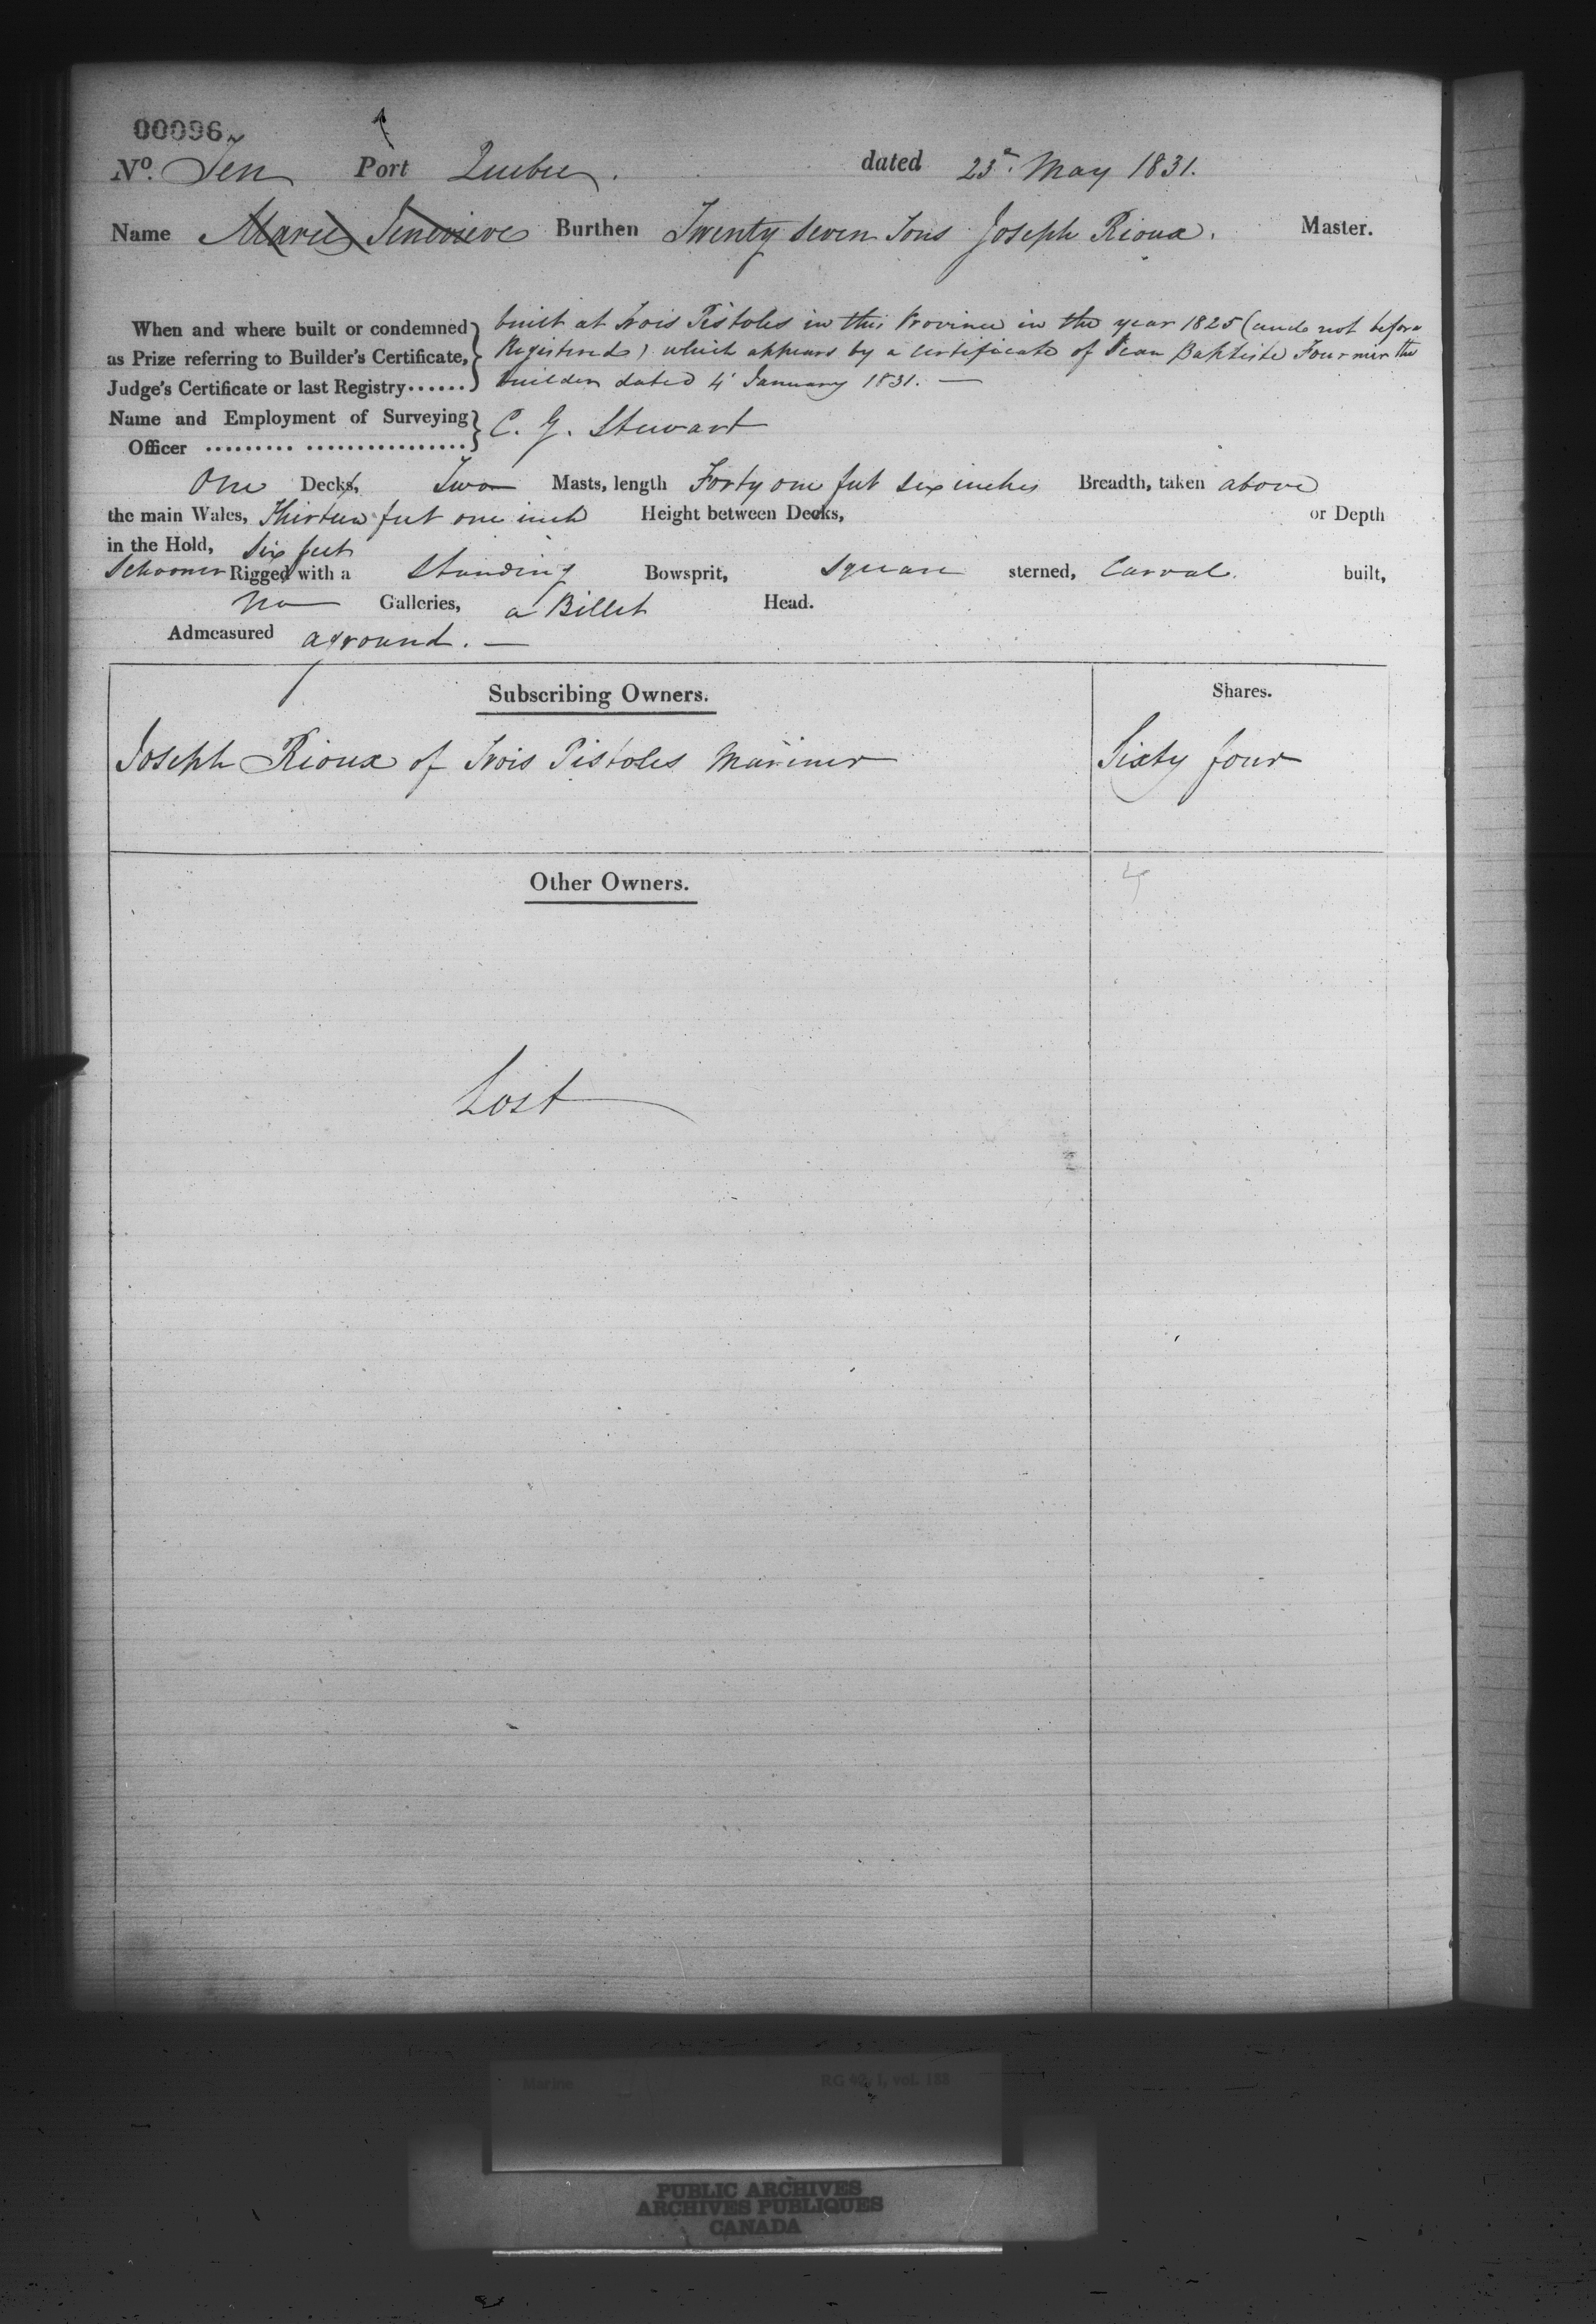 00096
No. Ten Port Quebec. dated 23d. May 1831.
Name Marie Genevieve Burthen Twenty seven Tons Joseph Rioux. Master.
When and where built or condemned as Prize referring to Builder's Certificate, Judge's Certificate or last Registry......
built at Trois Pistoles in this Province in the year 1825 (and not before
Registered) which appears by a certificate of Jean Baptiste Fournier the
builder dated 4 January 1831. —
Name and Employment of Surveying Officer ......... ................
C. G. Stewart
One Decks, Two Masts, length Forty one feet six inches Breadth, taken above
the main Wales, Thirteen feet one inch Height between Decks, or Depth
in the Hold, six feet
Schooner Rigged with a Standing Bowsprit, square sterned, Carvel built,
no Galleries, a Billet Head.
Admeasured aground. —
Subscribing Owners. Shares.
Joseph Rioux of Trois Pistoles Mariner Sixty four
Other Owners.
Lost
Marine RG 42, I, vol. 188
PUBLIC ARCHIVES
ARCHIVES PUBLIQUES
CANADA